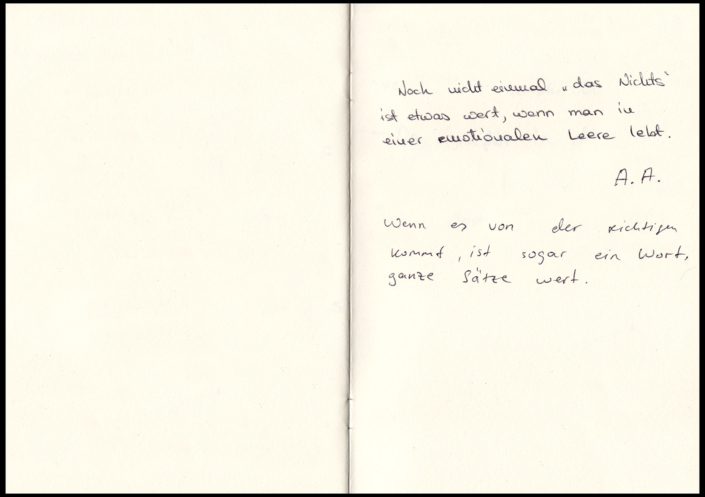 Noch nicht einmal „das Nichts“
ist etwas wert, wenn man in
einer emotionalen Leere lebt.
A. A.
Wenn es von der richtigen
kommt, ist sogar ein Wort,
ganze Sätze wert.